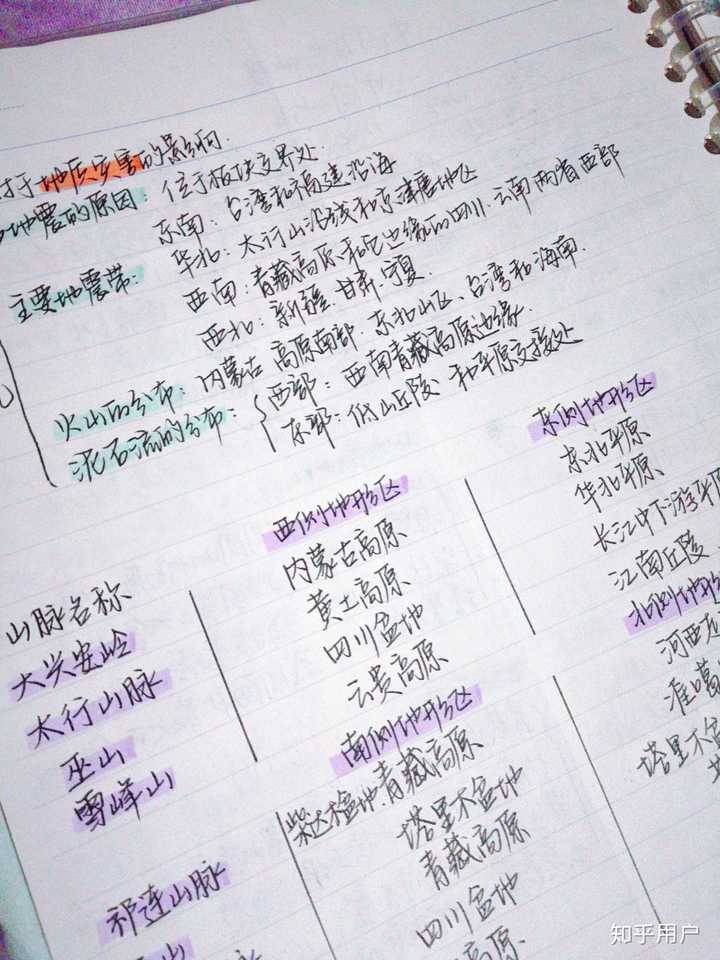 对于地质灾害的影响.
地震的原因：位于板块交界处
主要地震带：东南：台湾和福建沿海
华北：太行山沿线和京津唐地区
西南：青藏高原和它边缘的四川.云南两省西部
西北：新疆.甘肃.宁夏.
火山的分布：内蒙古高原南部.东北山区、台湾和海南.
泥石流的分布：西部：西南青藏高原边缘.
东部：低山丘陵和平原交接处
山脉名称 西侧地形区 东侧地形区
大兴安岭 内蒙古高原 东北平原
太行山脉 黄土高原 华北平原
巫山 四川盆地 长江中下游平
雪峰山 云贵高原 江南丘陵
南侧地形区 北侧地形
祁连山脉 柴达木盆地.青藏高原 河西
塔里木盆地 准噶
青藏高原 塔里木盆
四川盆地
高原
知乎用户